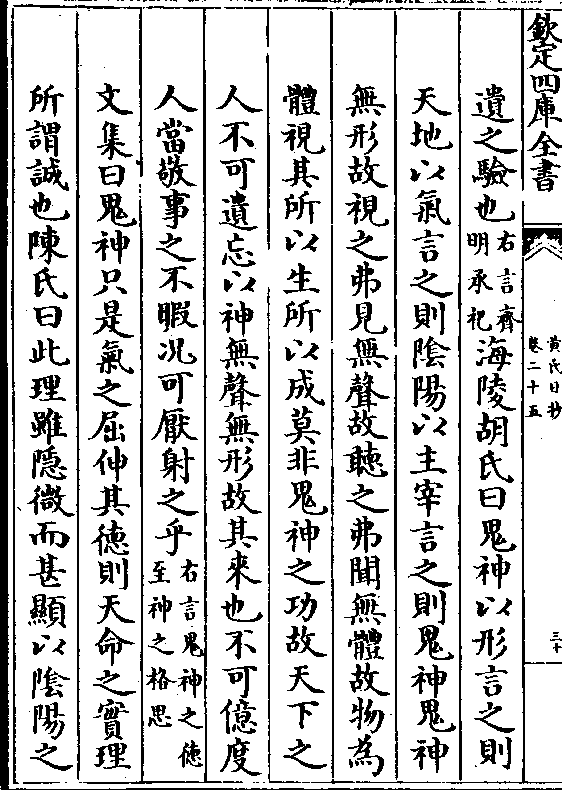 欽定四庫全書
黄氏日抄
卷二十五
三十
遺之驗也右言齊明承祀海陵胡氏曰鬼神以形言之則
天地以氣言之則隂陽以主宰言之則鬼神鬼神
無形故視之弗見無聲故聽之弗聞無體故物為
體視其所以生所以成莫非鬼神之功故天下之
人不可遺忘以神無聲無形故其來也不可億度
人當敬事之不暇况可厭射之乎右言鬼神之德至神之格思
文集曰鬼神只是氣之屈伸其德則天命之實理
所謂誠也陳氏曰此理雖隱微而甚顯以隂陽之